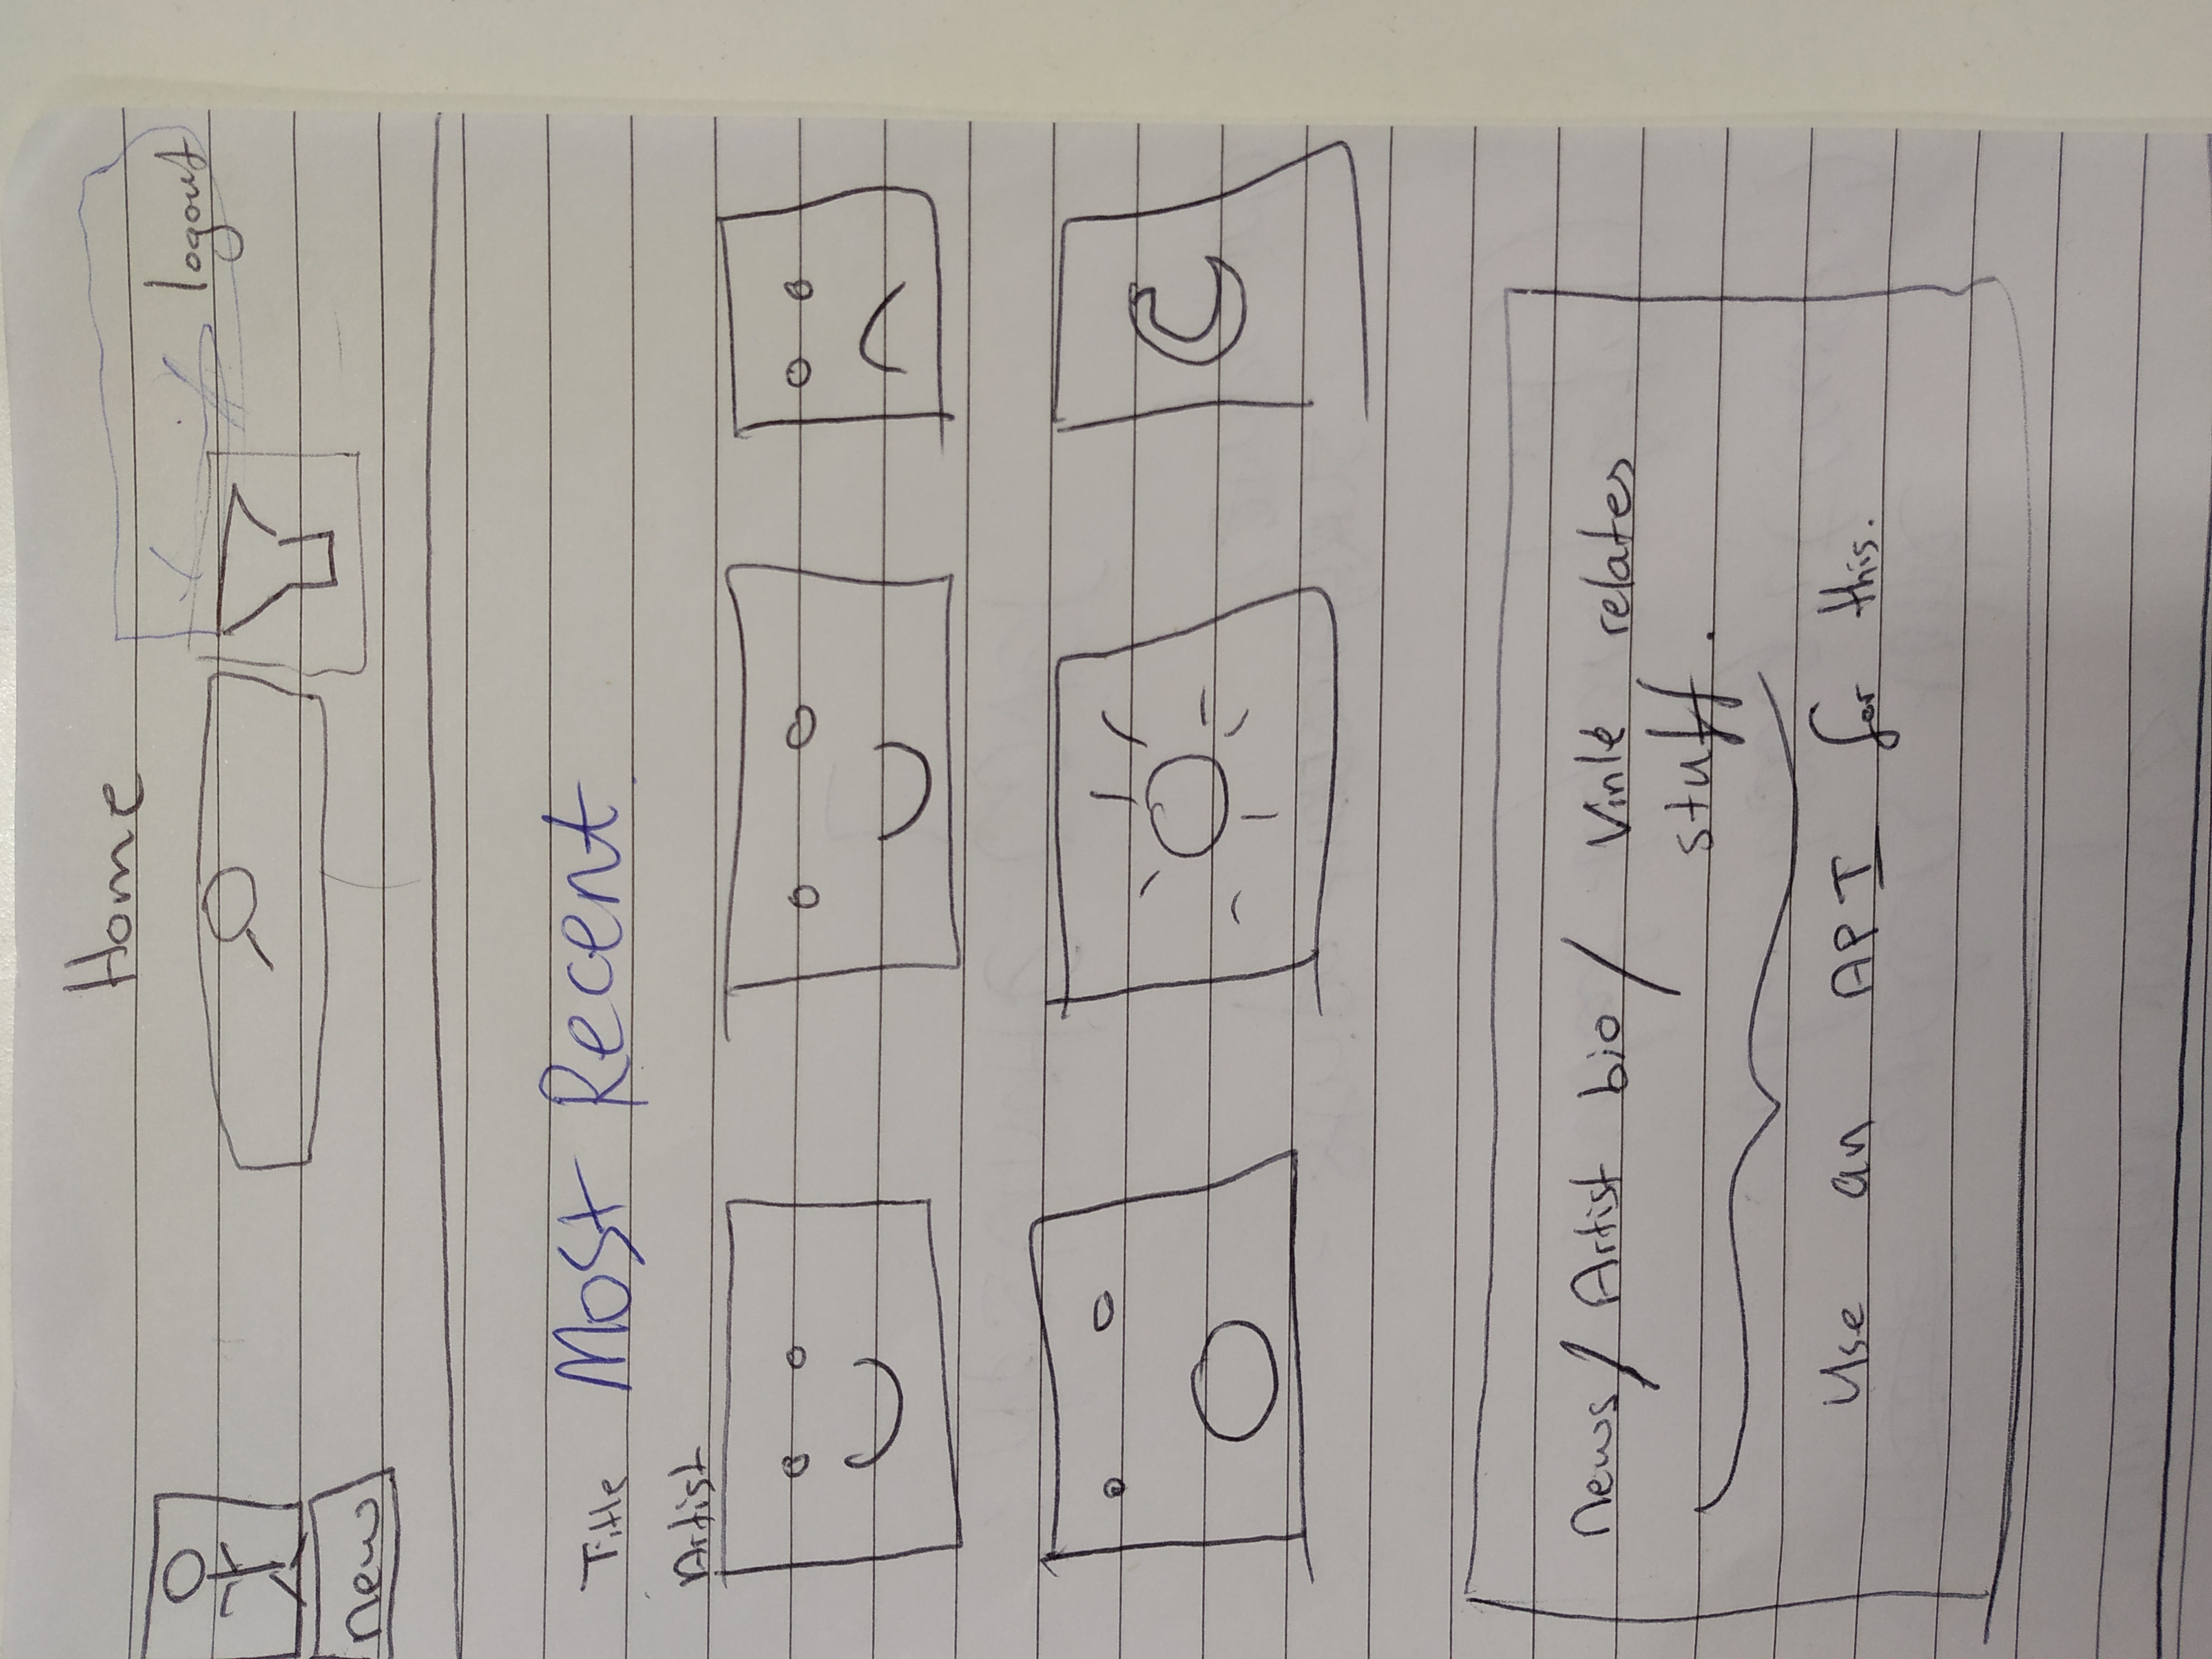 Home
logout
new
Title Most Recent
Artist
news/ Artist bio/ Vinle relates
stuff.
Use an API for this.